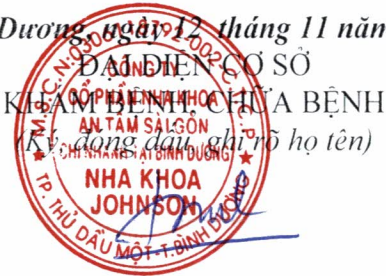 Dương, ngày 12 tháng 11 năm
ĐẠI DIỆN CƠ SỞ
KHÁM BỆNH, CHỮA BỆNH
(Ký, đóng dấu, ghi rõ họ tên)
CÔNG TY
CỔ PHẦN NHA KHOA
AN TÂM SÀI GÒN
CHI NHÁNH TẠI BÌNH DƯƠNG
NHA KHOA
JOHNSON
TP. THỦ DẦU MỘT-T.BÌNH DƯƠNG